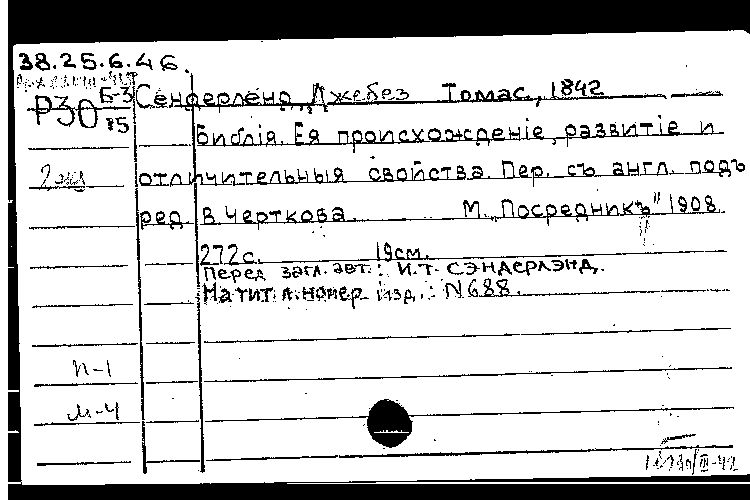 38.25.6.46.
Р30 Б-3
15
Сендерленд, Джебез Томас, 1842
Библія. Ея происхожденіе, развитіе и
2 экз
отличительныя свойства. Пер. съ англ. подъ
ред. В. Черткова. М. „Посредникъ" 1908.
272 с. 19 см.
Перед загл. авт.: И.Т. Сэндерлэнд.
На тит. л. номер изд.: N 688.
п-1
м-4